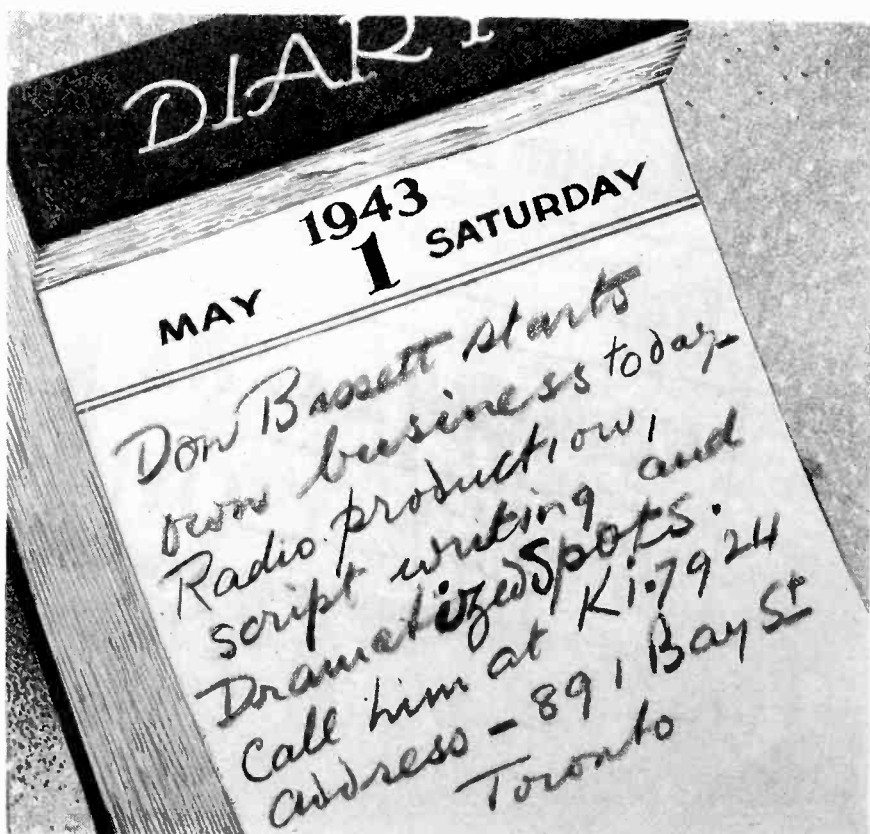 DIARY
1943
MAY 1 SATURDAY
Don Bassett starts
own business today-
Radio production,
script writing and
Dramatized Spots.
Call him at Ki.7924
address - 891 Bay St
Toronto